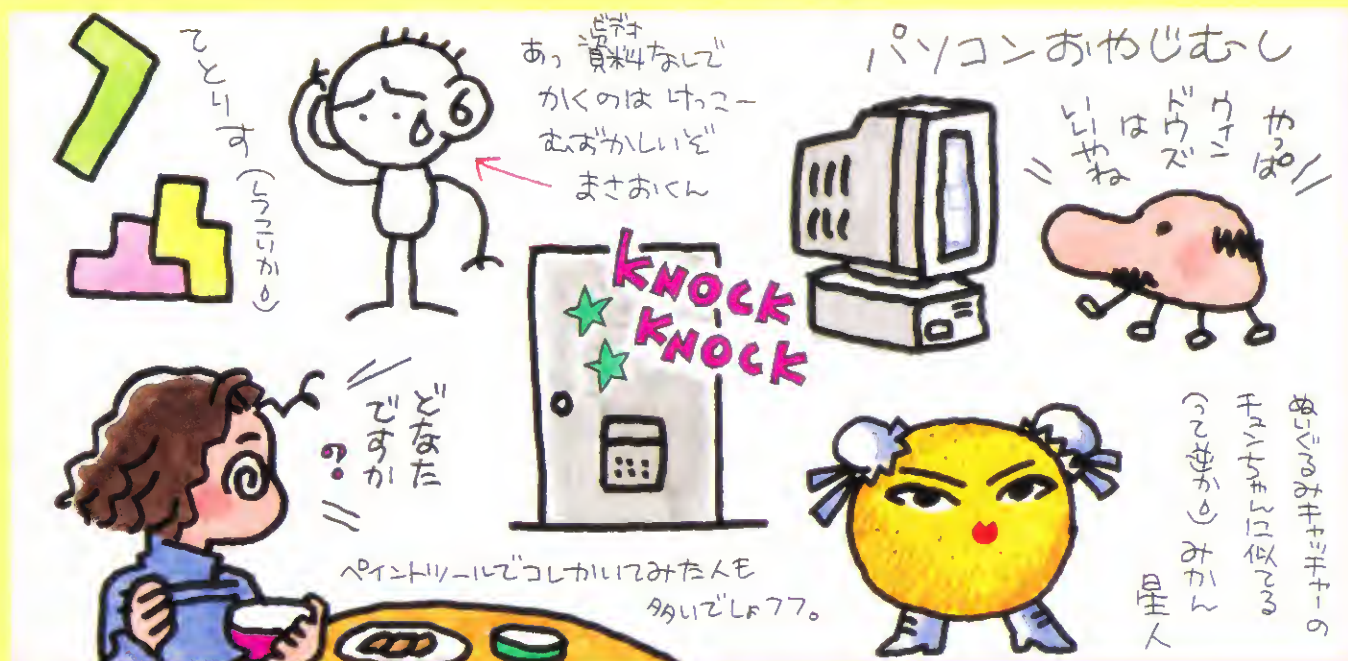 てとりす
(しつこいか)
ビデオ
あっ 資料なしで
かくのは けっこー
むずかしいぞ
まさおくん
パソコンおやじむーし
やっぱ
ウィン
ドウズ
は
いいやね
KNOCK
KNOCK
どなた
ですか
?
ペイントツールでコレかいてみた人も
多いでしょフフ。
ぬいぐるみキャッチャーの
チュンちゃんに似てる
(って逆か) みかん
星人